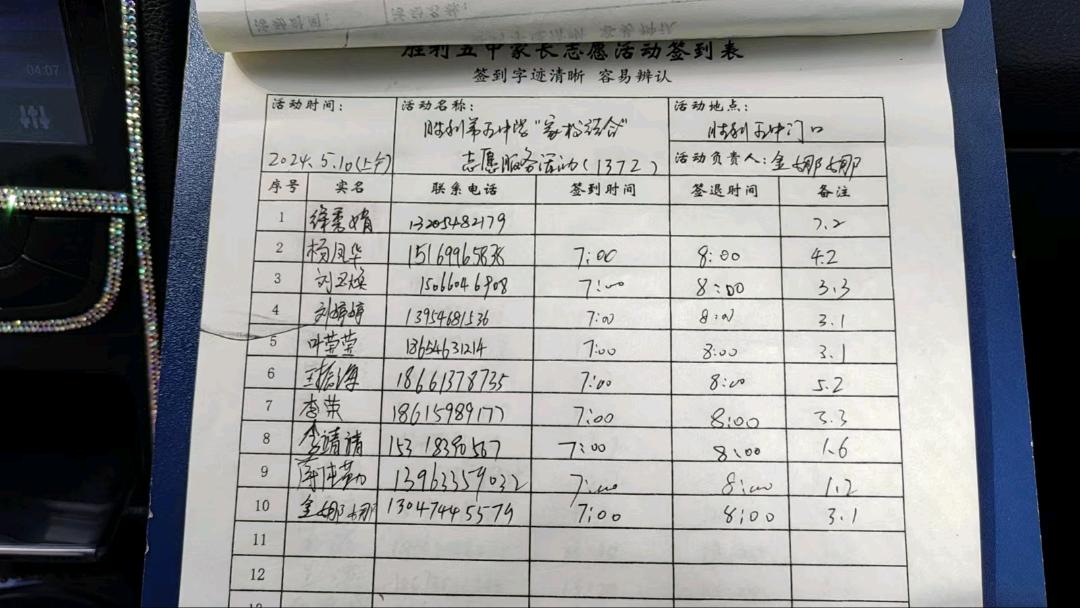 04:07
胜利五中家长志愿活动签到表
签到字迹清晰 容易辨认
活动时间: 活动名称: 活动地点:
胜利第五中学"家校结合" 胜利五中门口
2024.5.10(上午) 志愿服务活动(1372) 活动负责人:金娜娜
序号 实名 联系电话 签到时间 签退时间 备注
1 徐秀娟 13205482179 7.2
2 杨凤华 15169965838 7:00 8:00 4.2
3 刘 15066046908 7:00 8:00 3.3
4 刘婷婷 13954681536 7:00 8:00 3.1
5 叶莹莹 18654631214 7:00 8:00 3.1
6 王振海 18661378735 7:00 8:00 5.2
7 李荣 18615989177 7:00 8:00 3.3
8 李靖靖 15318390567 7:00 8:00 1.6
9 13963359032 7:00 8:00 1.2
10 金娜娜 13047445579 7:00 8:00 3.1
11
12